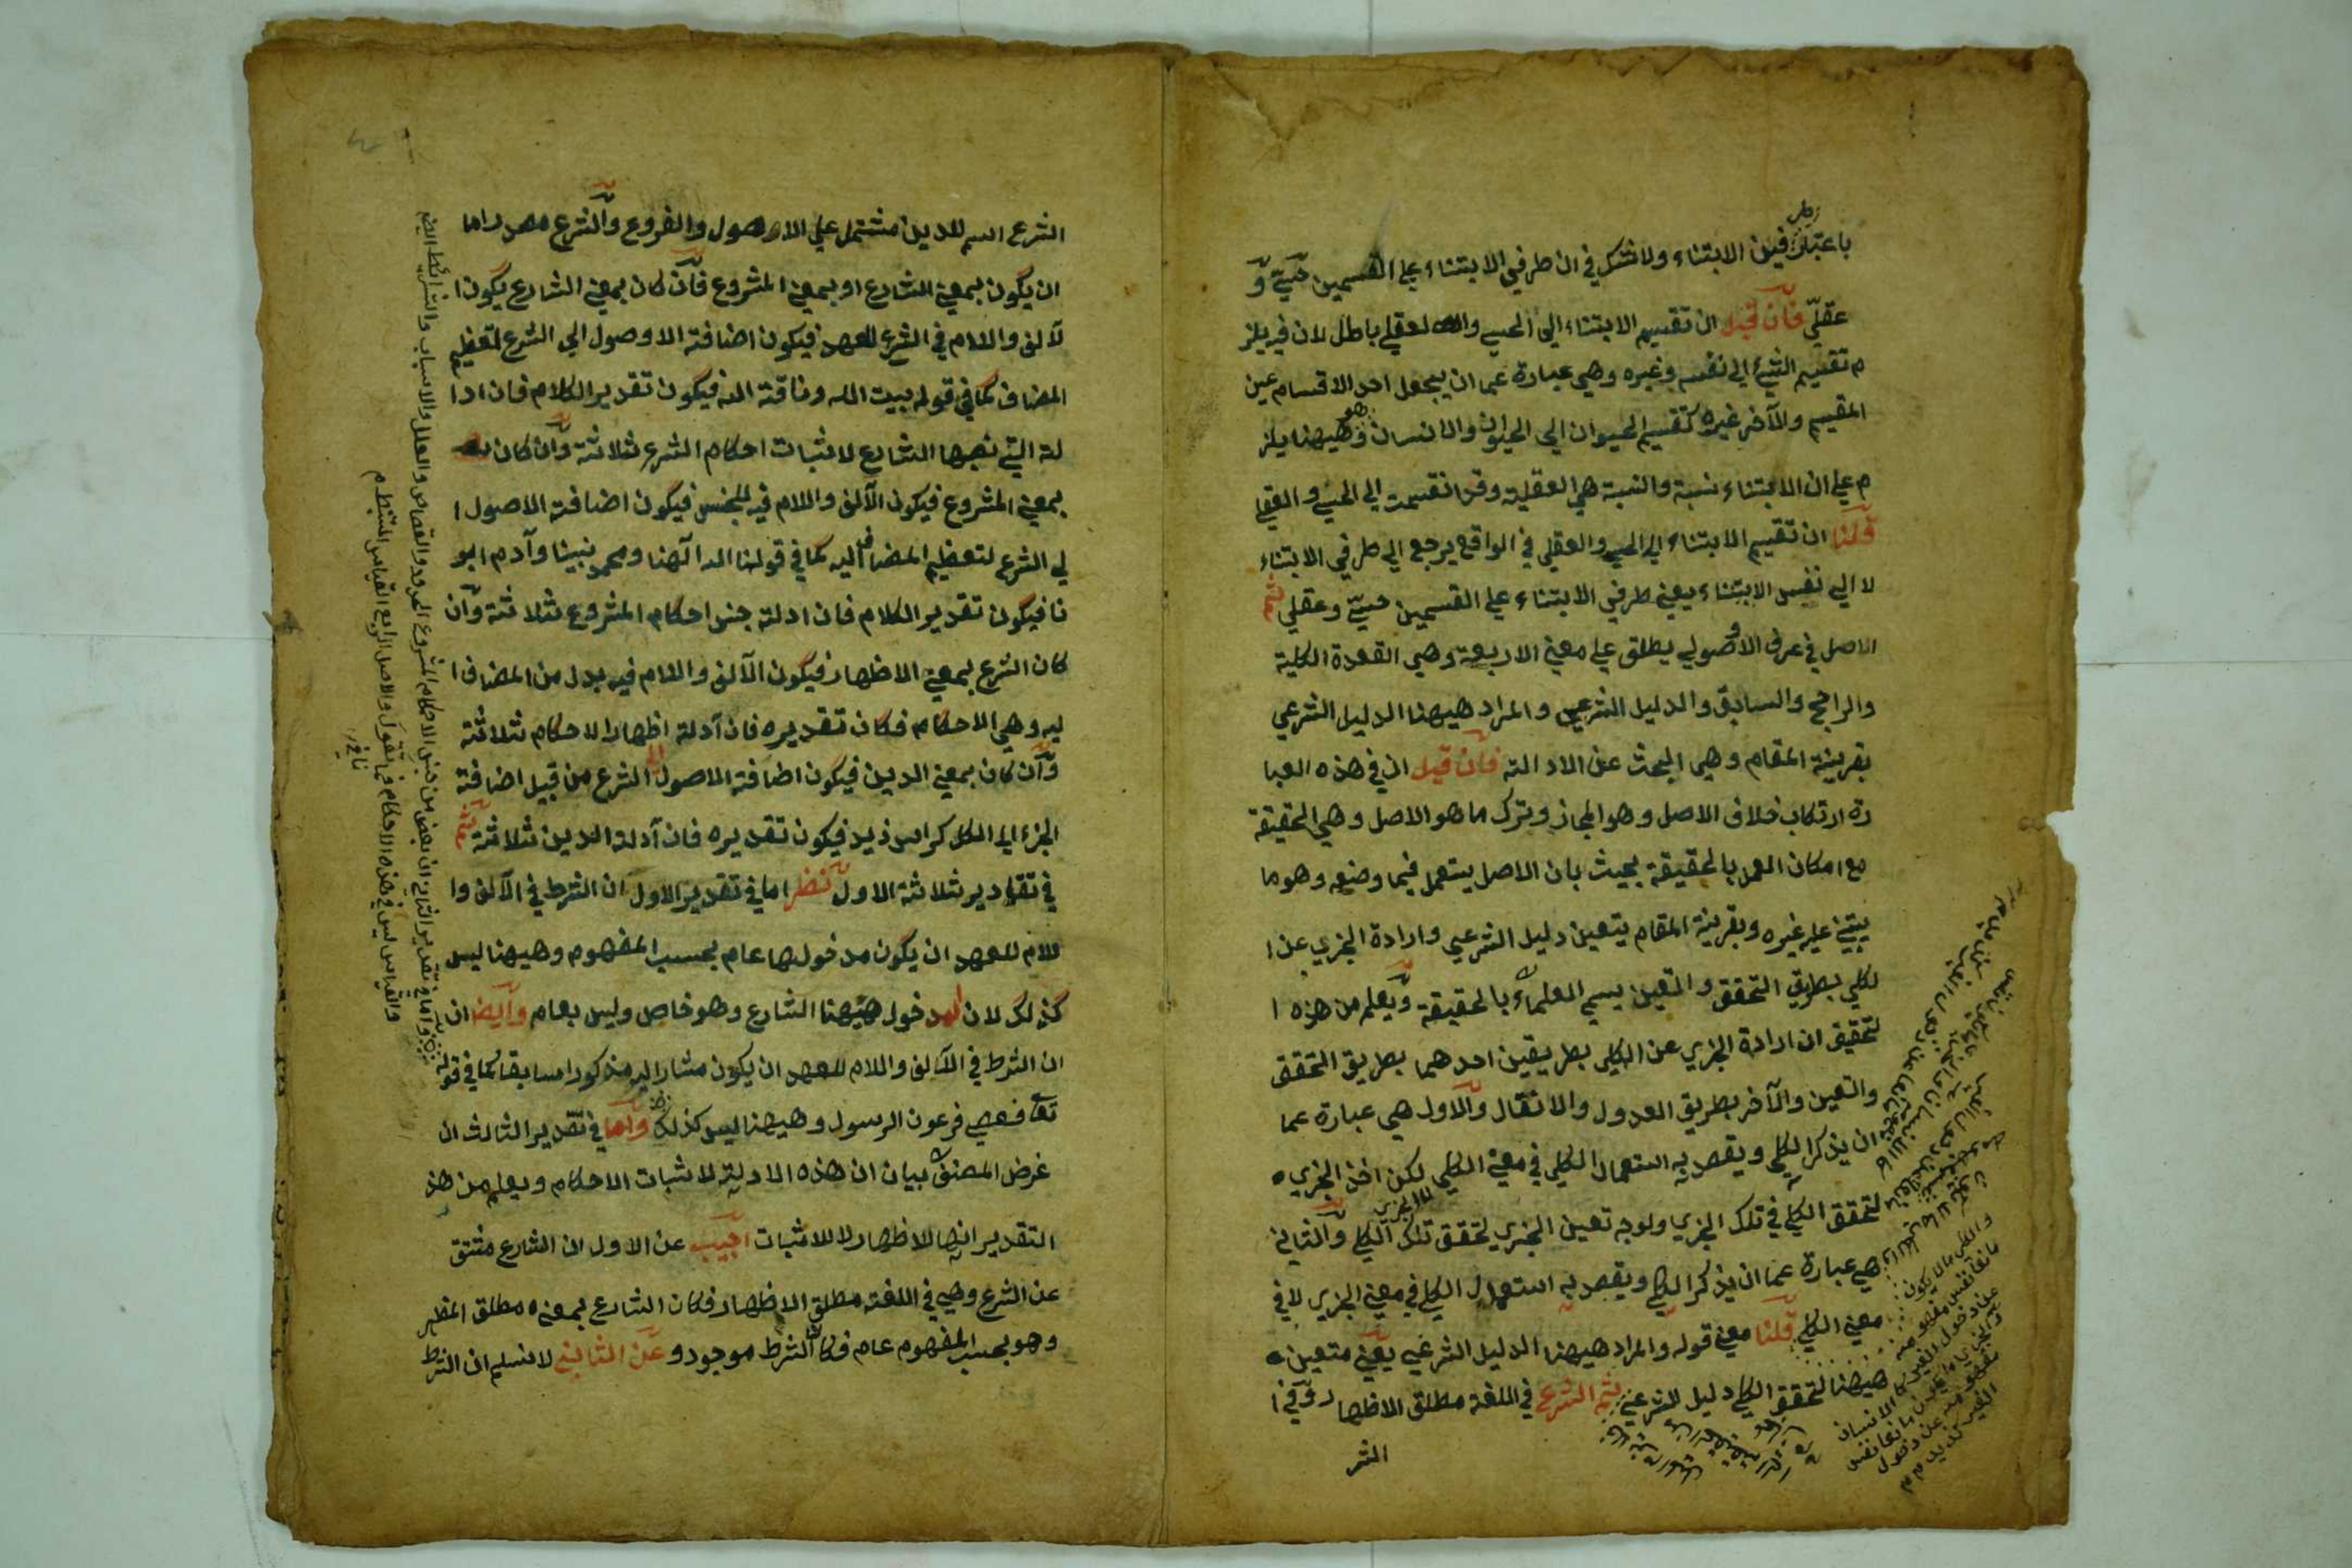 باعتبار طرفين الابتناء ولا شك في ان طرفي الابتناء على القسمين حسيّ و
عقلي فان قيل ان تقسيم الابتناء الى الحسي والعقلي باطل لان فيه يلز
م تقسيم الشئ الى نفسه وغيره وهي عبارة عما ان يجعل احد الاقسام عين
المقسم والآخر غيره كتقسيم الحيوان الى الحيوان والانسان وهيهنا يلز
م على ان الابتناء نسبة والنسبة هي العقلية وقد انقسمت الى الحسي والعقلي
قلنا ان تقسيم الابتناء الى الحسي والعقلي في الواقع يرجع الى طرفي الابتناء
لا الى نفس الابتناء يعني طرفي الابتناء على القسمين حسيّ وعقلي ثم
الاصل في عرف الاصولي يطلق على معني الاربعة وهي القعدة الكلية
والراجح والسابق والدليل الشرعي والمراد هيهنا الدليل الشرعي
بقرينة المقام وهي البحث عن الادالة فان قيل ان في هذه العبا
رة ارتكاب خلاف الاصل وهو المجاز وترك ما هو الاصل وهي الحقيقة
مع امكان العمل بالحقيقة بحيث بان الاصل يستعمل فيما وضعه وهو ما
يبتني عليه غيره وبقرينة المقام يتعين دليل الشرعي وارادة الجزي عن ا
لكلي بطريق التحقق والتعين يسمي العلماء بالحقيقة ويعلم من هذه ا
لتحقيق ان ارادة الجزي عن الكلي بطريقين احدهما بطريق التحقق
والتعين والآخر بطريق العدول والانتقال والاول هي عبارة عما
ان يذكر الكلي ويقصد به استعمال الكلي في معني الكلي لكن اخذ الجزي
لتحقق الكلي في تلك الجزي ولوجه تعين الجزي لتحقق تلك الكلي والثاني
هي عبارة عما ان يذكر الكلي ويقصد به استعمال الكلي في معني الجزي لا في
معني الكلي قلنا معني قوله والمراد هيهنا الدليل الشرعي يعني متعين
هيهنا لتحقق الكلي دليل الشرعي ثم الشرع في اللغة مطلق الاظهار وفي ا
الشر
الشرع اسم للدين مشتمل على الاصول والفروع والشرع مصدر اما
ان يكون بمعني الشارع او بمعني المشروع فان كان بمعني الشارع يكون ا
لآلف واللام في الشرع للعهد فيكون اضافة الاوصول الى الشرع لتعظيم
المضاف كما في قوله بيت الله وناقة الله فيكون تقدير الكلام فان ادا
لة التي نصبها الشارع لاثبات احكام الشرع ثلاثة وان كان
بمعني المشروع فيكون الآلف واللام فيه للجنس فيكون اضافة الاصول ا
لي الشرع لتعظيم المضاف اليه كما في قولنا الله آلهنا ومحمد نبينا وآدم ابو
نا فيكون تقدير الكلام فان ادلة جنس احكام المشروع ثلاثة وان
كان الشرع بمعني الاظهار فيكون الآلف واللام فيه بدل من المضاف ا
ليه وهي الاحكام فكان تقديره فان آدلة اظهار الاحكام ثلاثة
وان كان بمعني الدين فيكون اضافة الاصول الى الشرع من قبيل اضافة
الجزء الى الكل كراس زيد فيكون تقديره فان آدلة الدين ثلاثة ثم
في تقادير ثلاثة الاول نظر اما في تقدير الاول ان الشرط في الآلف وا
للام للعهد ان يكون مدخولها عام بحسب المفهوم وهيهنا ليس
كذلك لان المدخول هيهنا الشارع وهو خاص وليس بعام وايضا ان
ان الشرط في الآلف واللام للعهد ان يكون مشار اليه مذكورا سابقا كما في قوله
تعا فعصي فرعون الرسول وهيهنا ليس كذلك واما في تقدير الثالث ان
غرض المصنف بيان ان هذه الادلة لاثبات الاحكام ويعلم من هذ
التقدير انها للاظهار لا للاثبات اجيب عن الاول ان الشارع مشتق
عن الشرع وهي في اللغة مطلق الاظهار فكان الشارع بمعناه مطلق المظهر
وهو بحسب المفهوم عام فكان الشرط موجود وعن الثاني لا نسلم ان الشرط
واما في تقدير الثاني ان بعض من جنس الاحكام المشروع الحدود والقصاص والعلل والاسباب والشرائط
والقياس ليس في هذه الاحكام فما تقول والاصل الرابع القياس المستنبط